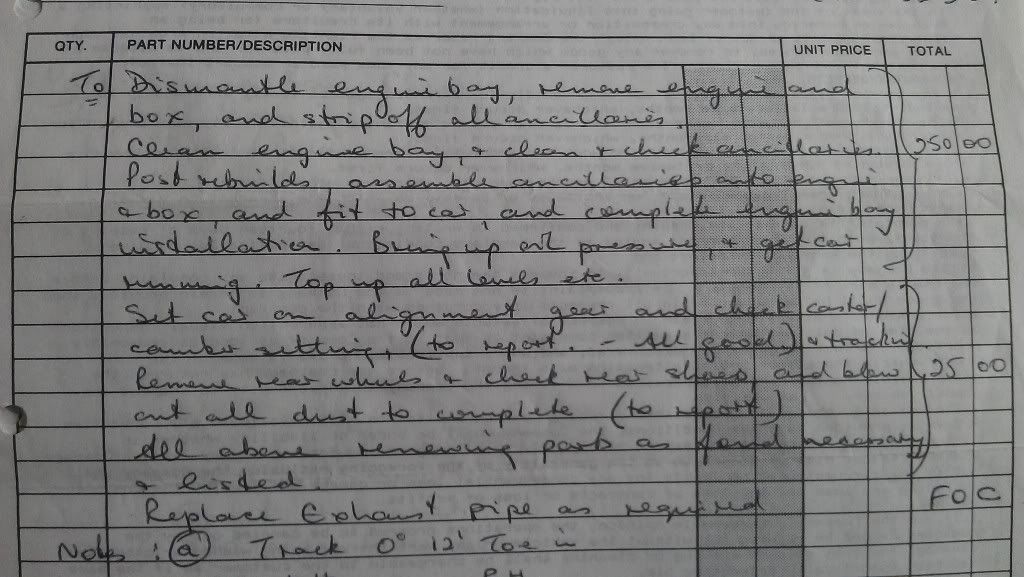 QTY. PART NUMBER/DESCRIPTION UNIT PRICE TOTAL
To Dismantle engine bay, remove engine and
box, and strip off all ancillaries.
Clean engine bay, + clean + check ancillaries. 250 00
Post rebuilds, assemble ancillaries onto engine
+ box, and fit to car, and complete engine bay
installation. Bring up oil pressure, + get car
running. Top up all levels etc.
Set car on alignment gear and check castor/
camber setting, (to report. - All good) + trackin
Remove rear wheels + check rear shoes and blow 25 00
out all dust to complete (to report)
All above renewing parts as found necessary
+ listed.
Replace Exhaust pipe as required FOC
Notes : (a) Track 0° 12' Toe in